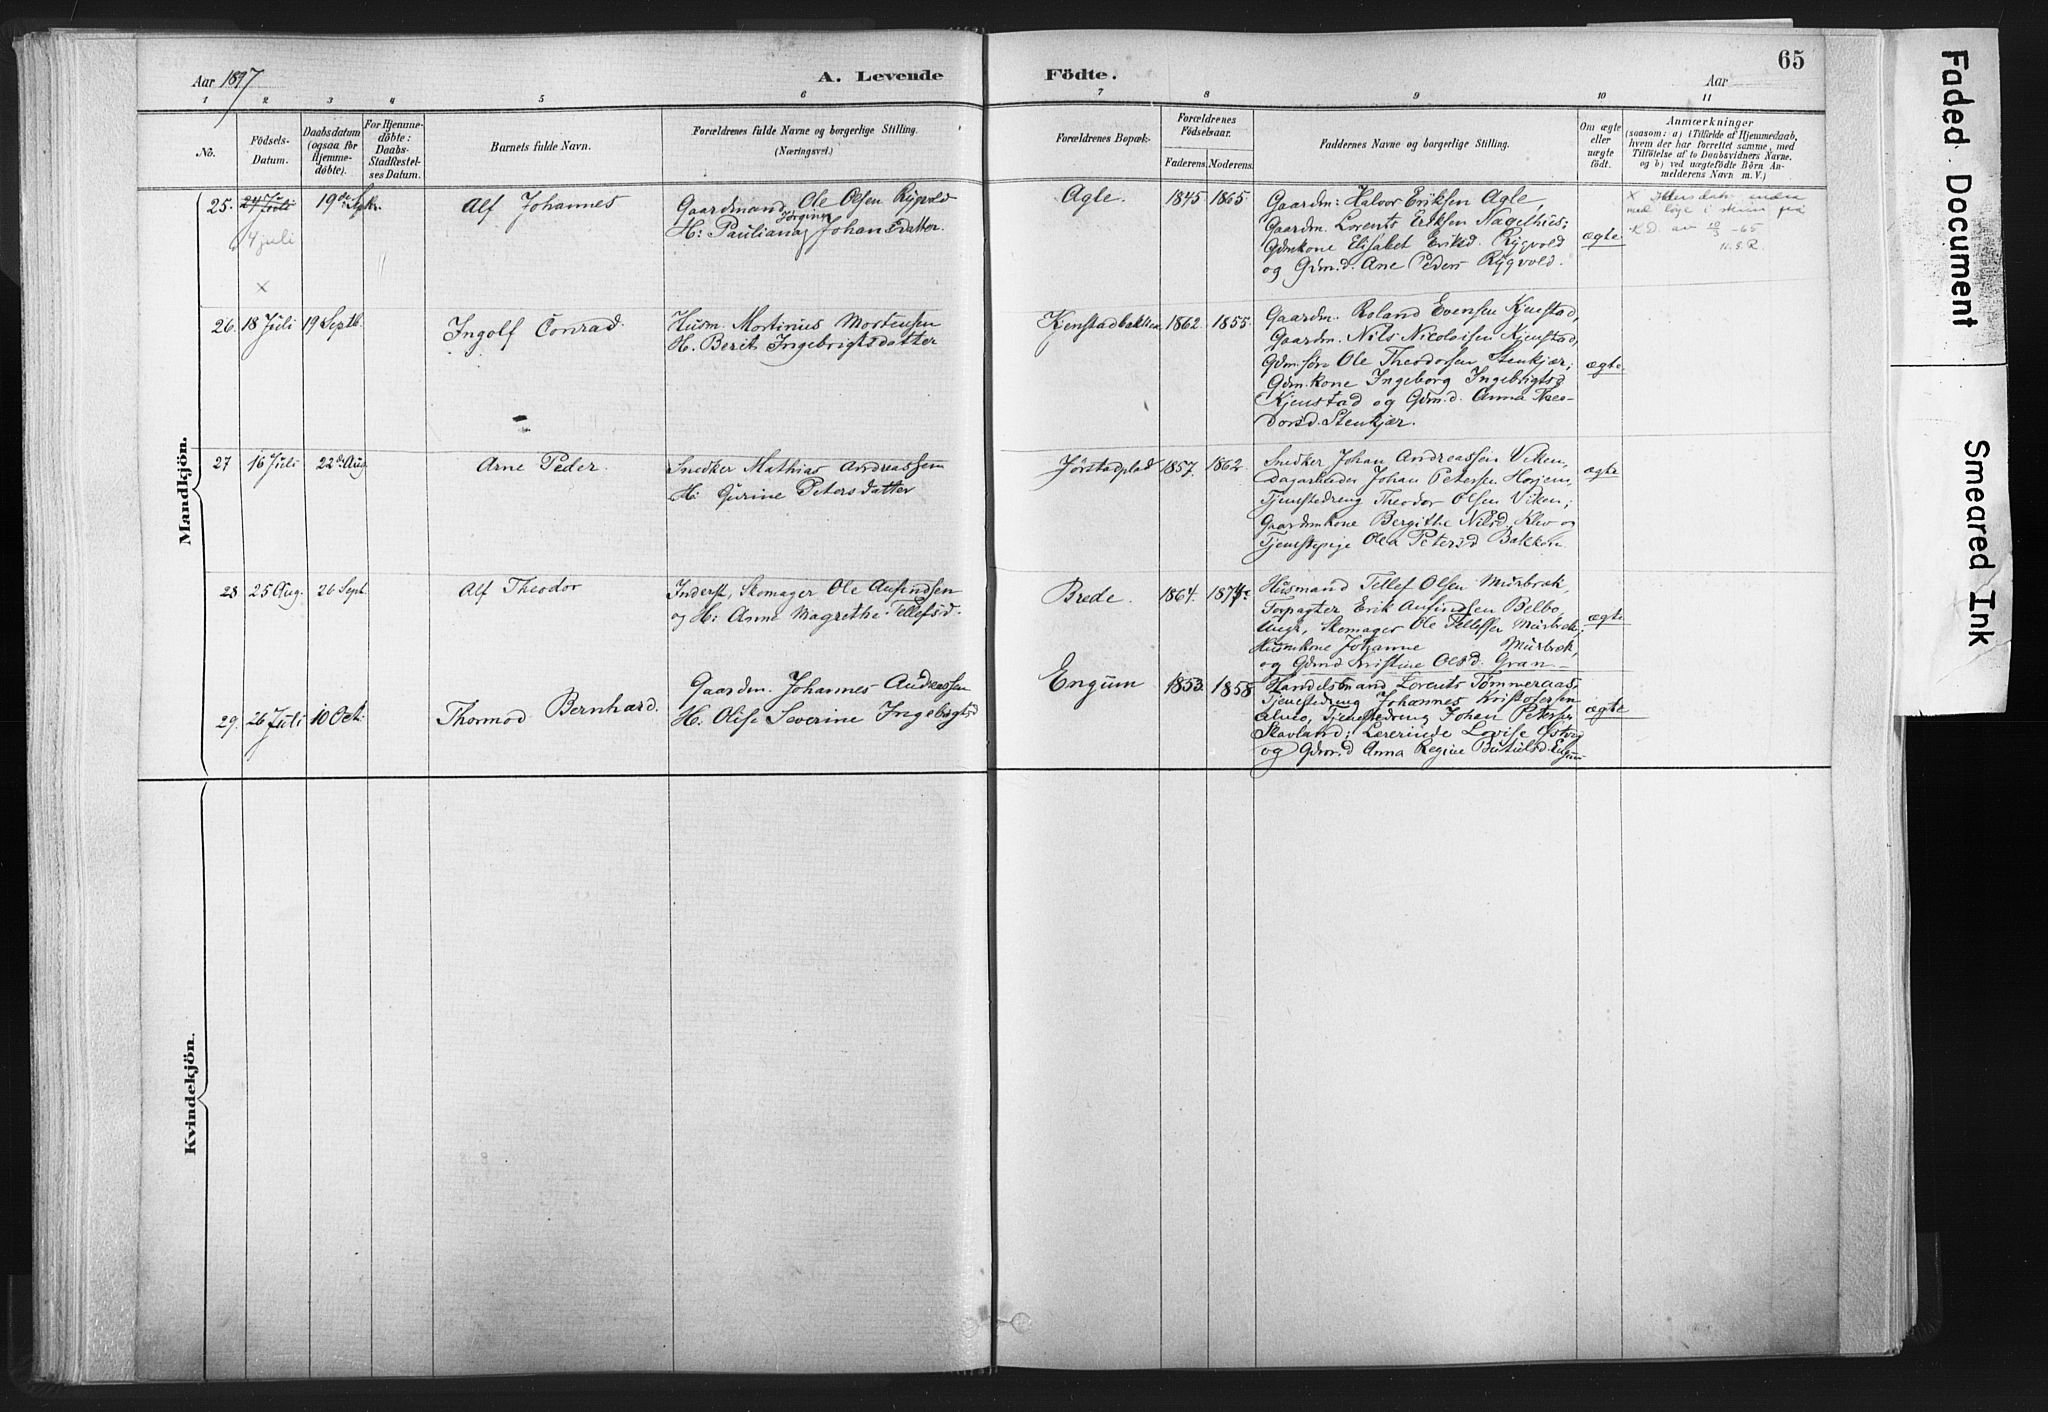 65
Aar 1897
A. Levende Födte.
Aar
1 2 3 4 5 6 7 8 9 10 11
No.
Födsels-Datum.
Daabsdatum (ogsaa for Hjemme-döbte).
For Hjemme-döbte: Daabs-Stadfæstel-ses Datum.
Barnets fulde Navn.
Forældrenes fulde Navne og borgerlige Stilling.
(Næringsvei.)
Forældrenes Bopæl.
Forældrenes Födselsaar.
Faderens. Moderens.
Faddernes Navne og borgerlige Stilling.
Om ægte eller uægte födt.
Anmærkninger
(saasom: a) i Tilfælde af Hjemmedaab,
hvem der har forrettet samme, med
Tilföielse af to Daabsvidners Navne,
og b) ved uægtefödte Börn An-
melderens Navn m. V.)
Mandkjön.
25. 24 Juli 19de Sept.
4 juli
x
Alf Johannes
Gaardmand Ole Olsen Rygvold
Jørgine
H: Pauliana Johansdatter.
Agle.
1845 1865.
Gaardm: Halvor Eriksen Agle,
Gaardm. Lorents Eriksen Nagelhus;
Gdmkone Elisabet Eriksd. Rygvold
og Gdm.d. Ane Peders Rygvold.
ægte
x
K.D. av 10/3 -65
26. 18 Juli 19 Septb.
Ingolf Conrad.
Husm. Mortinus Mortensen
H. Berit Ingebrigtsdatter
Kjenstadbakken
1862. 1855.
Gaardm. Roland Evensen Kjenstad,
Gaardm. Nils Nicolaisen Kjenstad,
Gdm.søn Ole Theodorsen Stenkjær;
Gdm.kone Ingeborg Ingebrigtsd
Kjenstad og Gdm.d. Anna Theo-
dorsd. Stenkjær.
ægte.
27 16 Juli 22de Aug.
Arne Peder.
Snedker Mathias Andreassen
H: Gurine Petersdatter
Jørstadplad
1857. 1862.
Snedker Johan Andreassen Viken,
Dagarbeider Johan Petersen Hojem,
Tjenestedreng Theodor Olsen Viken;
Gaardmkone Bergithe Nilsd. Klev og
Tjenestepige Petersd Bakken
ægte
28 25 Aug. 26 Sept.
Alf Theodor
Inderst, Skomager Ole Anfindsen
og H: Anne Magrethe Tellefsd.
Brede.
1864.
Husmand Tellef Olsen Murbræk,
Forpagter Erik Anfindsen Belbo,
Ungk. Skomager Ole Tellefsen Murbræk;
Husmkone Johanne Murbræk,
og Gdmd Kristine Olsd. Gran-
ægte
29. 26 Juli 10 Oct.
Thormod Bernhard.
Gaardm. Johannes Andreassen
H. Olise Severine Ingebrigtsd
Engum
1853. 1858
Handelsmand Lorents Tømmeraas,
Tjenestedreng Johannes Kristofersen
Tjenestedreng Johan Petersen
Skavland; Lærerinde Lovise
og Gdm.d Anna Regine Engum
ægte
Kvindekjön.
Faded Document
Smeared Ink